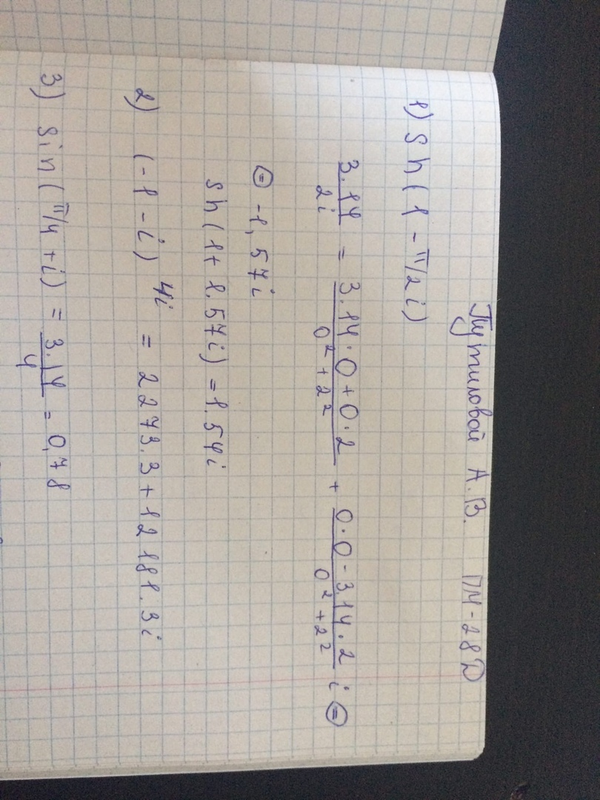 Путиловой А.В. ПМ-28Д
1) Sh(1 - π/2i)
3.14/2i = (3.14·0+0·2)/(0²+2²) + (0·0-3.14·2)/(0²+2²) i =
= -1,57i
sh(1+1.57i) = 1.54i
2) (-1-i)^4i = 2273.3+12181.3i
3) sin(π/4+i) = 3.14/4 = 0,78